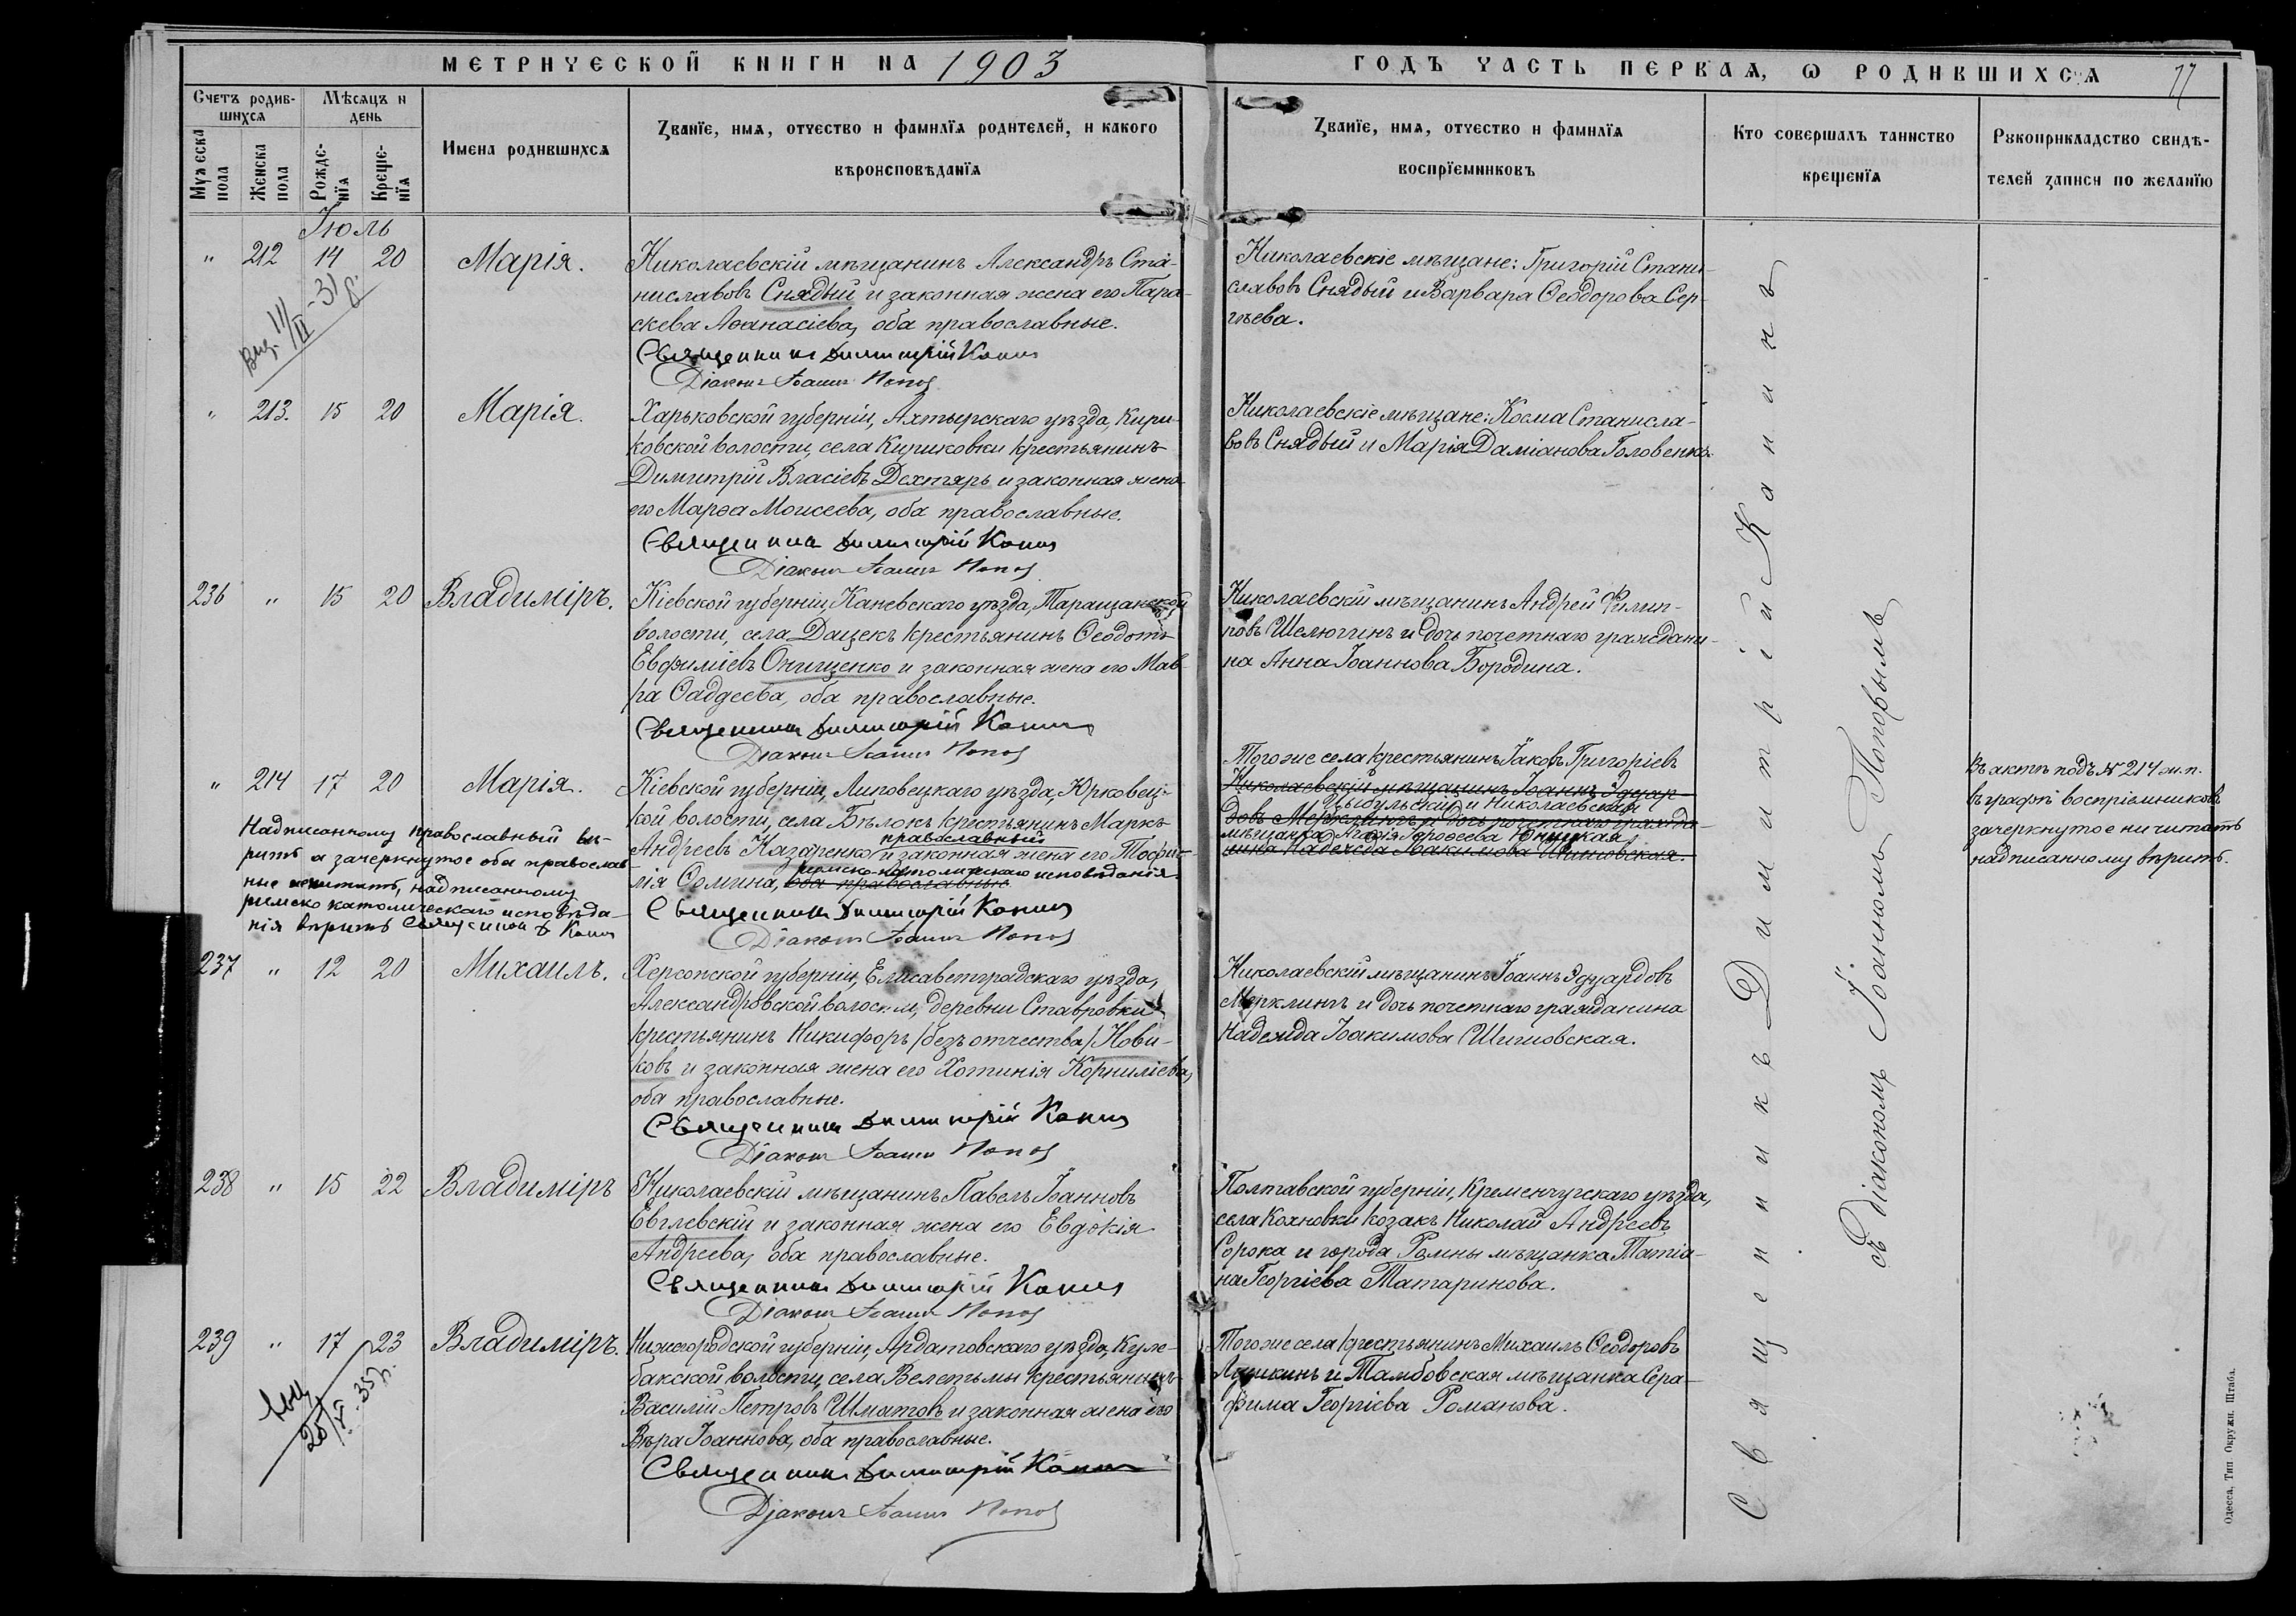 МЕТРИЧЕСКОЙ КНИГИ НА 1903
ГОДЪ ЧАСТЬ ПЕРВАЯ, Ѡ РОДИВШИХСЯ
77
Счетъ родив-
шихся
Мѣсяцъ и
день
Имена родившихся
Званїе, имя, отчество и фамилїя родителей, и какого
вѣроисповѣданїя
Званїе, имя, отчество и фамилїя
воспрїемниковъ
Кто совершалъ таинство
крещенїя
Рукоприкладство свидѣ-
телей записи по желанїю
Мужеска
пола
Женска
пола
Рожде-
нїя
Креще-
нїя
Іюль
" 212 14 20 Марія.
Николаевскій мѣщанинъ Александръ Ста-
ниславовъ Снядый и законная жена его Пара-
скева Аѳанасіева, оба православные.
Священникъ Димитрій
Діаконъ Іоаннъ
Николаевскіе мѣщане: Григорій Стани-
славовъ Снядый и Варвара Ѳеодорова Сер-
гѣева.
" 213. 15 20 Марія.
Харьковской губерніи, Ахтырскаго уѣзда, Кири-
ковской волости, села Кириковки крестьянинъ
Димитрій Власіевъ Дехтярь и законная жена
его Марѳа Моисеева, оба православные.
Священникъ Димитрій
Діаконъ Іоаннъ
Николаевскіе мѣщане: Косма Станисла-
вовъ Снядый и Марія Даміанова Головенко.
236 " 15 20 Владиміръ.
Кіевской губерніи, Каневскаго уѣзда, Таращанской
волости, села Дацекъ крестьянинъ Ѳеодотъ
Евфиміевъ Онищенко и законная жена его Мав-
ра Ѳаддеева, оба православные.
Священникъ Димитрій
Діаконъ Іоаннъ
Николаевскій мѣщанинъ Андрей Филип-
повъ Шелюгинъ и дочь почетнаго граждани-
на Анна Іоаннова Бородина.
" 214 17 20 Марія.
Кіевской губерніи, Липовецкаго уѣзда, Юрковец-
кой волости, села Бѣлокъ крестьянинъ Маркъ
православный
Андреевъ Казаренко и законная жена его Теофи-
римско-католическаго исповѣданія.
лія Ѳомина, оба православные
Священникъ Димитрій
Діаконъ Іоаннъ
Надписанному православный вѣ-
рить а зачеркнутое оба православ
ные нечитать, надписанному
римско католическаго исповѣда-
нія вѣрить Священникъ Д
Того же села крестьянинъ Іаковъ Григоріевъ
Николаевскій мѣщанинъ Іоаннъ Эдуар-
Цыбульскій и Николаевская
довъ Мерклингъ и дочь почетнаго гражда-
мѣщанка Агафія Гордеева
нина Надежда Іоакимова Шишовская.
Въ актѣ подъ № 214 ж. п.
въ графѣ воспріемниковъ
зачеркнутое не читать
надписанному вѣрить.
237 " 12 20 Михаилъ.
Херсонской губерніи, Елисаветградскаго уѣзда,
Александровской волости, деревни Ставровки
крестьянинъ Никифоръ /безъ отчества/ Нови-
ковъ и законная жена его Хотинія Корниліева,
оба православные.
Священникъ Димитрій
Діаконъ Іоаннъ
Николаевскій мѣщанинъ Іоаннъ Эдуардовъ
Мерклингъ и дочь почетнаго гражданина
Надежда Іоакимова Шишовская.
238 " 15 22 Владиміръ
Николаевскій мѣщанинъ Павелъ Іоанновъ
Евглевскій и законная жена его Евдокія
Андреева, оба православные.
Священникъ Димитрій
Діаконъ Іоаннъ
Полтавской губерніи, Кременчугскаго уѣзда,
села Кохновки козакъ Николай Андреевъ
Сорока и города Ромны мѣщанка Татіа-
на Георгіева Татаринова.
239 " 17 23 Владиміръ.
Нижегородской губерніи, Ардатовскаго уѣзда, Куле-
бакской волости, села Велетьмы крестьянинъ
Василій Петровъ Шматовъ и законная жена его
Вѣра Іоаннова, оба православные.
Священникъ Димитрій
Діаконъ Іоаннъ
Того же села крестьянинъ Михаилъ Ѳеодоровъ
Лушкинъ и Тамбовская мѣщанка Сера-
фима Георгіева Романова.
Священникъ Димитрій
съ діакономъ Іоанномъ
Одесса, Тип. Окружн. Штаба.